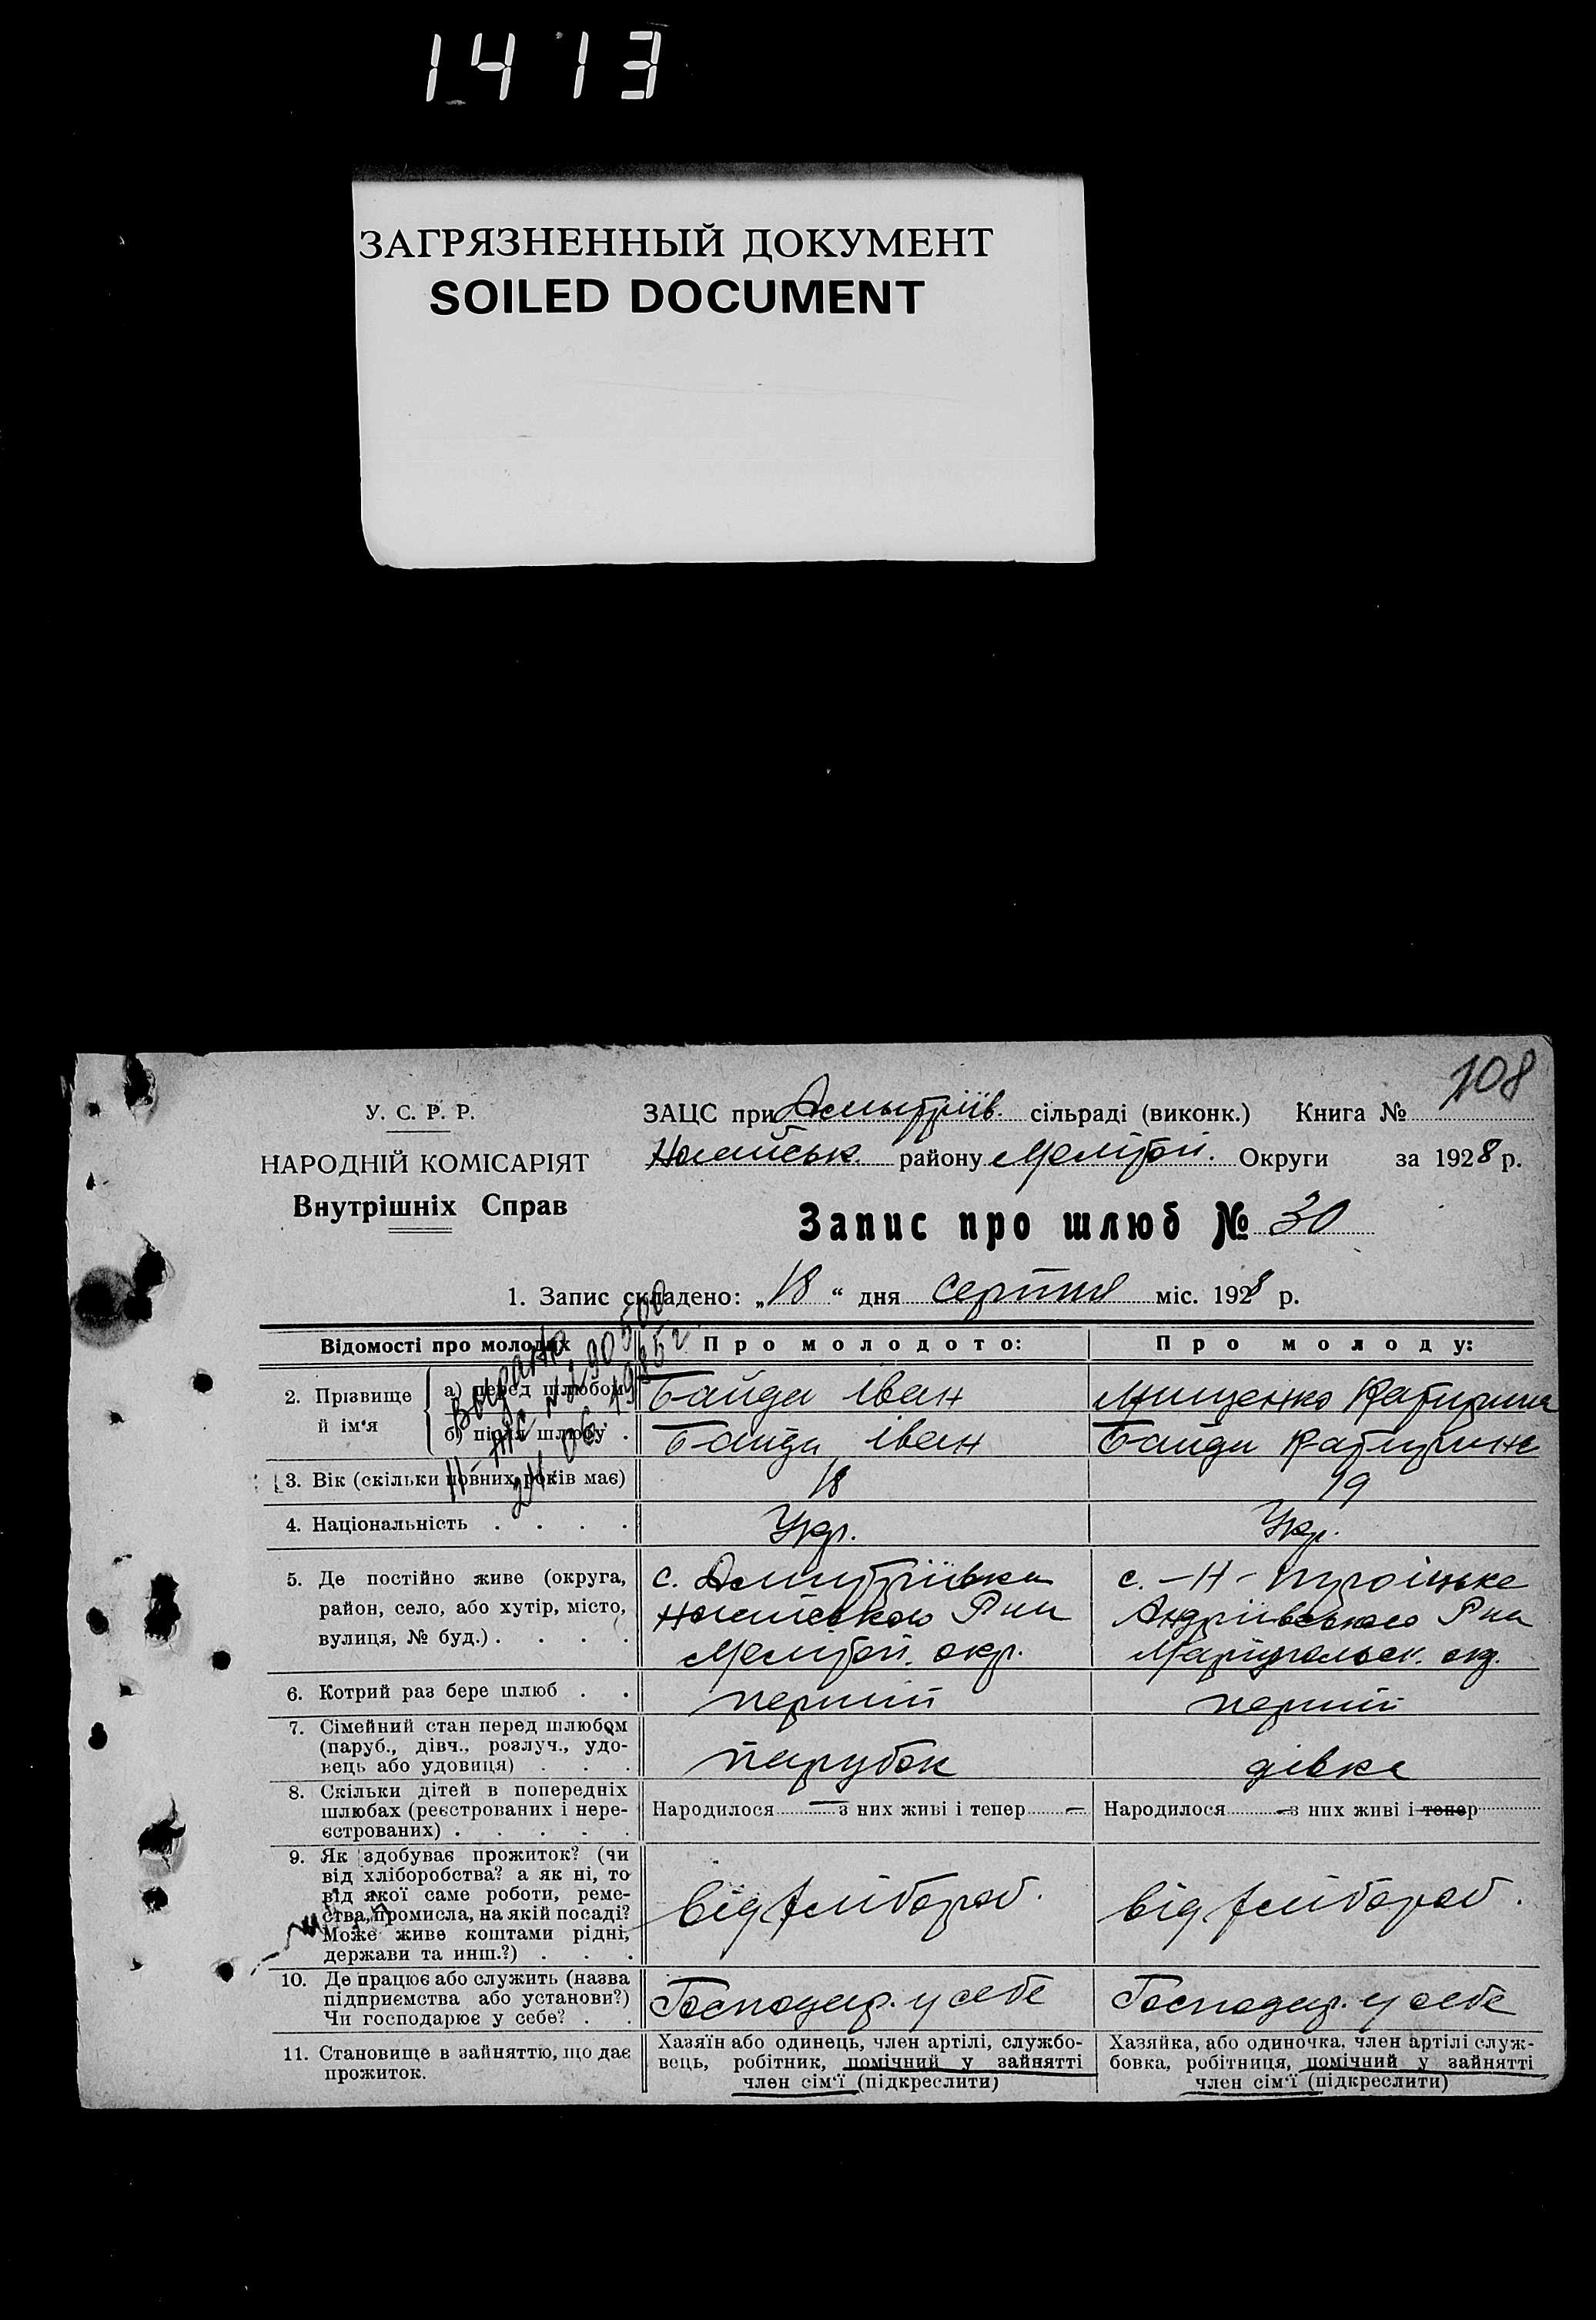 1413
ЗАГРЯЗНЕННЫЙ ДОКУМЕНТ
SOILED DOCUMENT
108
У. С. Р. Р.
ЗАЦС при Дмытріїв. сільраді (виконк.) Книга №
НАРОДНІЙ КОМІСАРІЯТ
Ногайськ. району Мелітоп. Округи за 1928 р.
Внутрішніх Справ
Запис про шлюб № 30
1. Запис складено: „18“ дня серпня міс. 1928 р.
Відомості про молодих
Про молодого:
Про молоду:
2. Прізвище й ім'я
а) перед шлюбом
Байда Іван
Мищенко Катирина
б) після шлюбу .
Байда Іван
Байда Катирина
3. Вік (скільки повних років має)
18
19
4. Національність . . . .
Укр.
Укр.
5. Де постійно живе (округа,
район, село, або хутір, місто,
вулиця, № буд.) . . . .
с. Дмитріївка
Ногайського Р-на
Мелітоп. окр.
с. - Н - Троіцьке
Андріівського Р-на
Маріупольск. окр.
6. Котрий раз бере шлюб . .
перший
перший
7. Сімейний стан перед шлюбом
(паруб., дівч., розлуч., удо-
вець або удовиця) . . .
парубок
дівка
8. Скільки дітей в попередніх
шлюбах (реєстрованих і нере-
єстрованих) . . . . .
Народилося — з них живі і тепер —
Народилося — з них живі і тепер
9. Як здобуває прожиток? (чи
від хліборобства? а як ні, то
від якої саме роботи, реме-
ства, промисла, на якій посаді?
Може живе коштами рідні,
держави та инш.?) . . .
від хлібороб.
від хлібороб.
10. Де працює або служить (назва
підприємства або установи?)
Чи господарює у себе? . .
Господар. у себе
Господар. у себе
11. Становище в зайняттю, що дає
прожиток.
Хазяїн або одинець, член артілі, службо-
вець, робітник, помічний у зайнятті
член сім'ї (підкреслити)
Хазяйка, або одиночка, член артілі служ-
бовка, робітниця, помічний у зайнятті
член сім'ї (підкреслити)